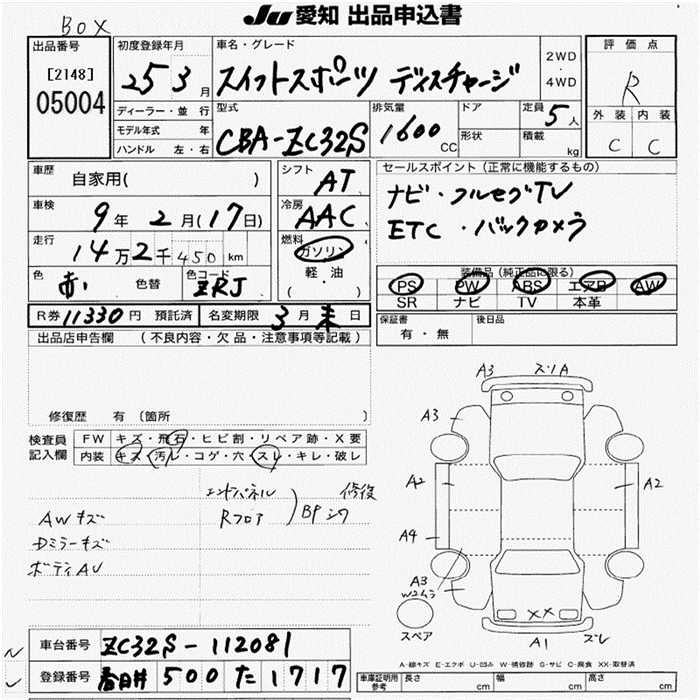 BOX
JU 愛知 出品申込書
出品番号
[2148]
05004
初度登録年月
25 3月
車名・グレード
スイフトスポーツ ディスチャージ
2WD
・
4WD
評価点
R
外装 内装
C C
ディーラー・並行
モデル年式 年
ハンドル 左・右
型式
CBA-ZC32S
排気量
1600 CC
ドア
形状
定員 5人
積載 kg
車歴
自家用( )
シフト AT
セールスポイント(正常に機能するもの)
ナビ・フルセグTV
ETC・バックカメラ
車検
9年 2月(17日)
冷房 AAC
走行
14万2千450km
燃料
ガソリン
軽・油
( )
色 赤 色替
色コード ZRJ
装備品(純正品に限る)
PS PW ABS エアB AW
SR ナビ TV 本革
R券 11330円 預託済 名変期限 3月末日
保証書
有・無
後日品
出品店申告欄 (不良内容・欠品・注意事項等記載)
修復歴 有 (箇所 )
検査員
記入欄
FW キズ・飛石・ヒビ割・リペア跡・X要
内装 キズ・汚レ・コゲ・穴・スレ・キレ・破レ
エンドパネル 修復
Rフロア BPシワ
AWキズ
Dミラーキズ
ボディAU
A3 スリA
A3
A2 A2
A4
A3
XX
スペア
A1 ズレ
A-線キズ E-エクボ U-凹み W-補修跡 G-サビ C-腐食 XX-取替済
車台番号 ZC32S-112081
登録番号 春日井 500 た 1717
車庫証明用
参考
長さ cm 幅 cm 高さ cm